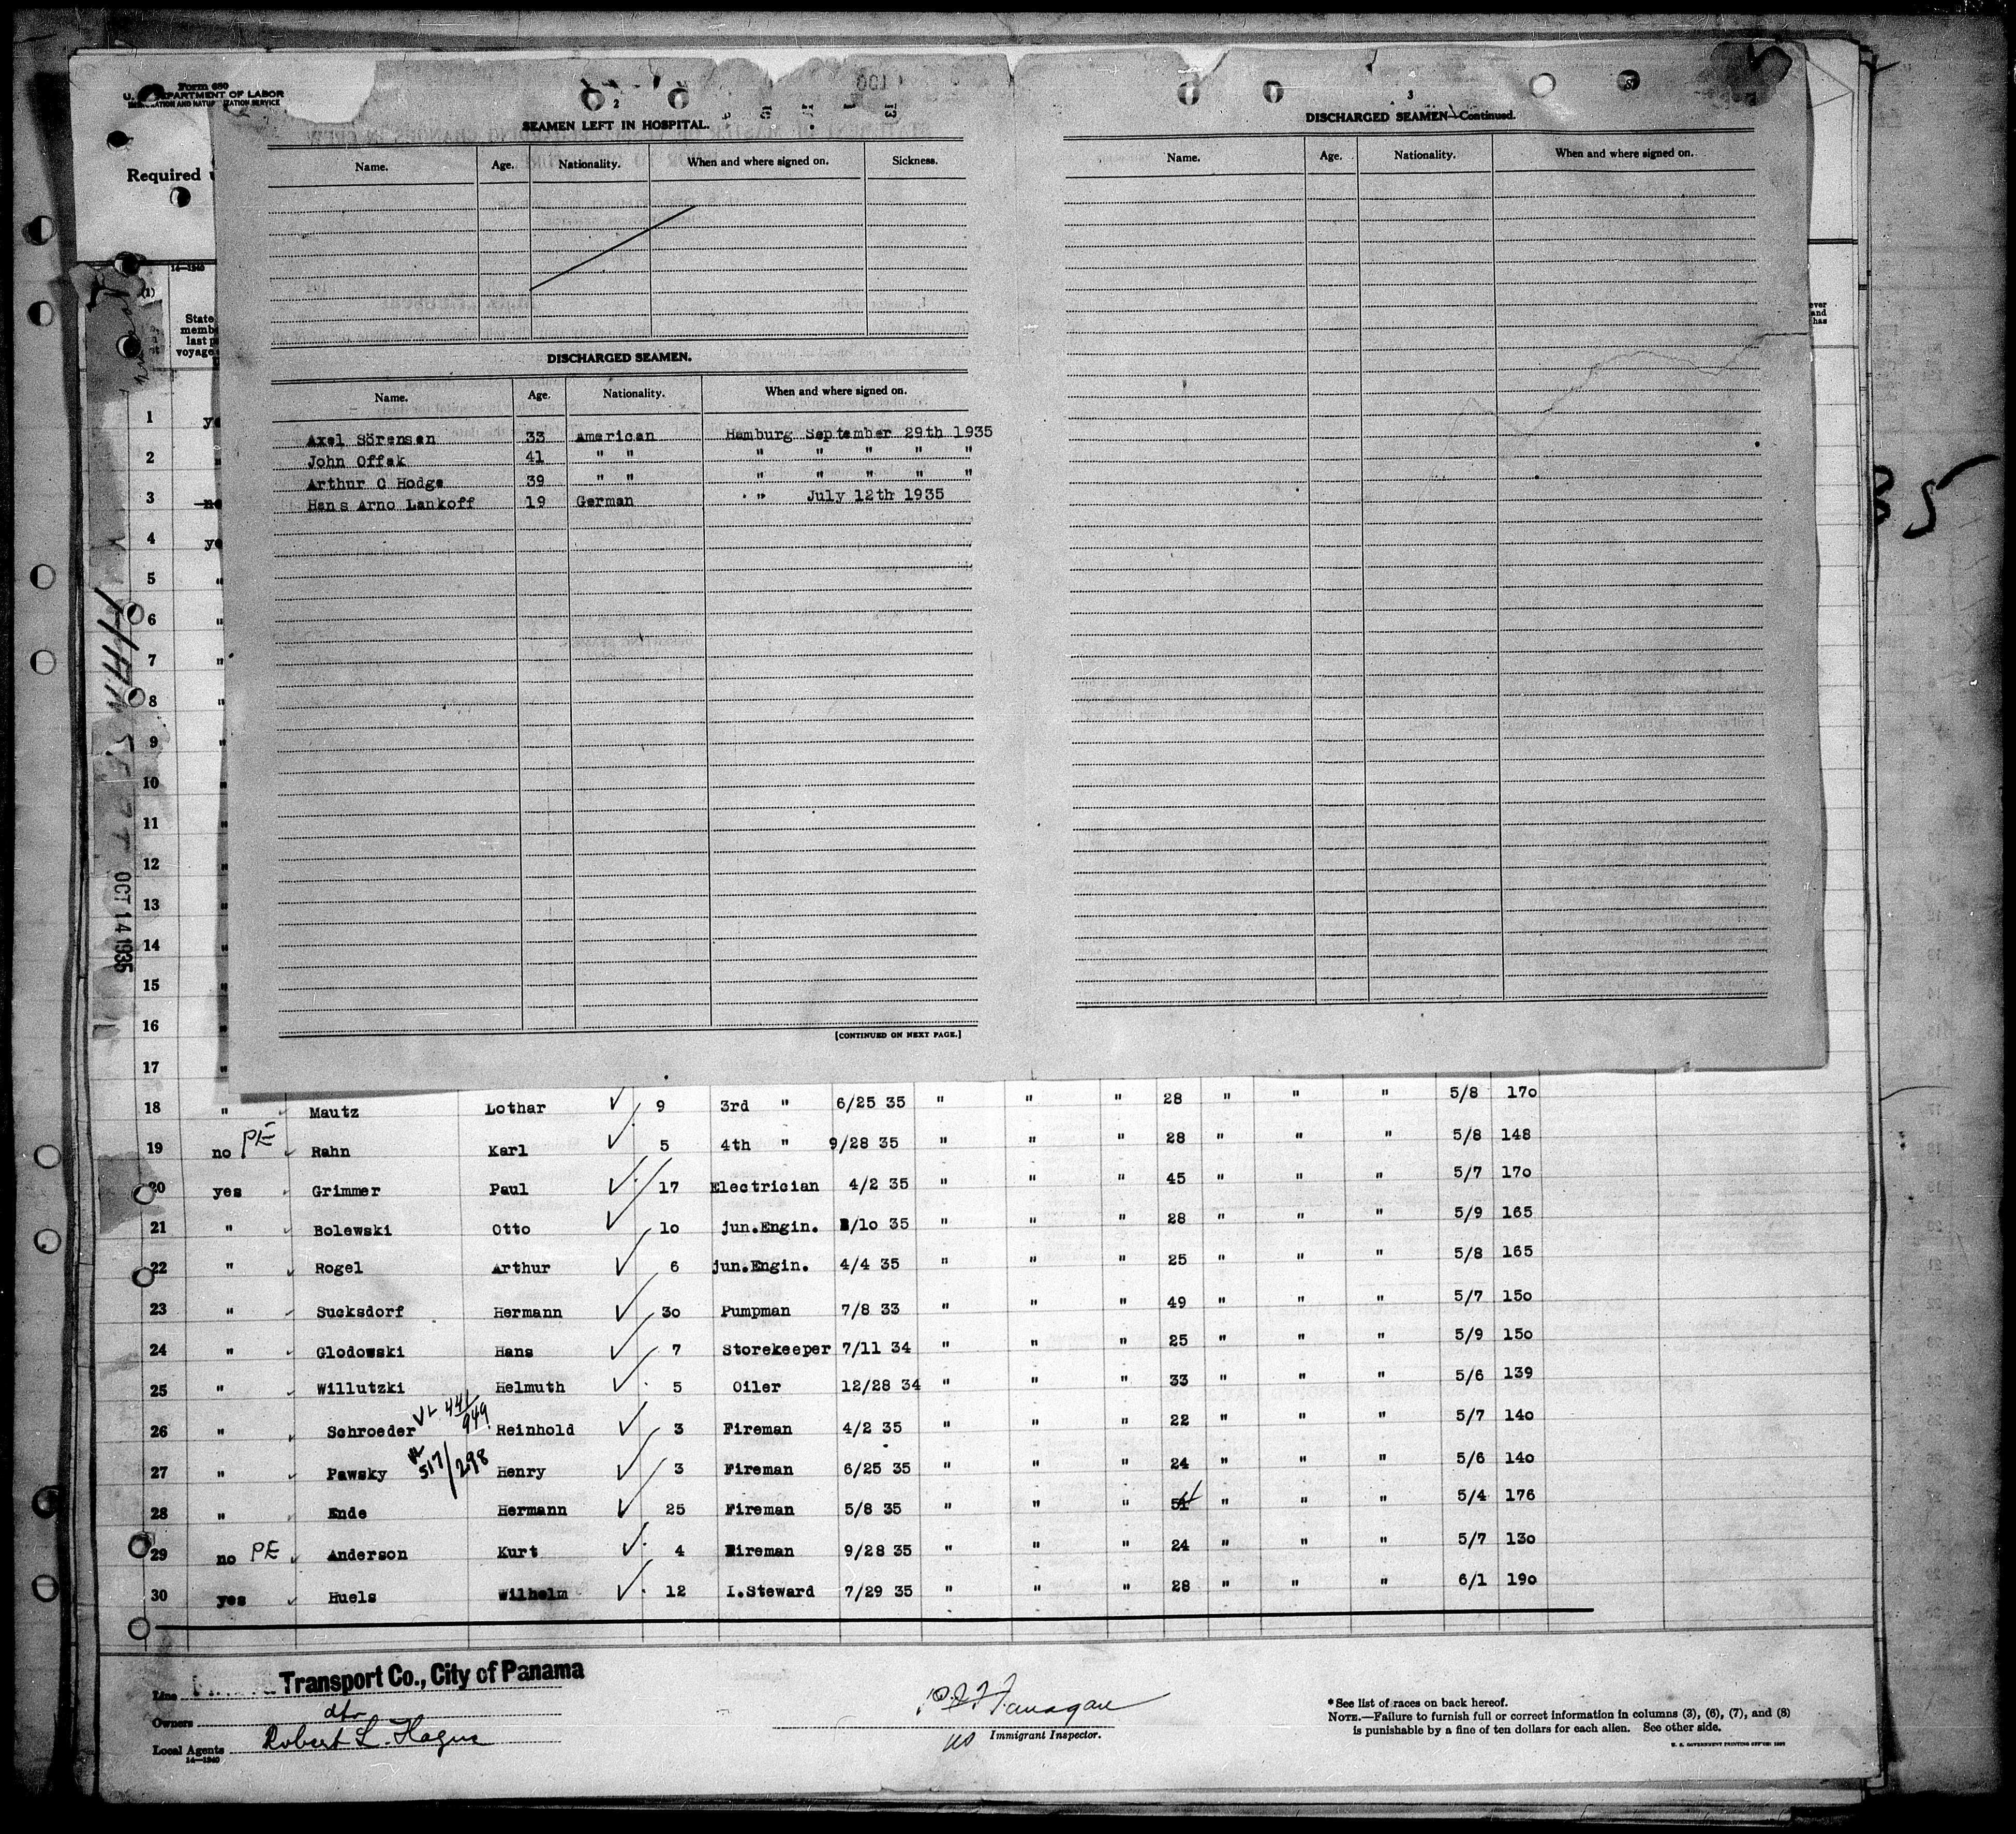 Form 680
U. S. DEPARTMENT OF LABOR
IMMIGRATION AND NATURALIZATION SERVICE
Required
14—1240
(1)
State
memb
last p
voyage
2
SEAMEN LEFT IN HOSPITAL.
Name. Age. Nationality. When and where signed on. Sickness.
DISCHARGED SEAMEN.
Name. Age. Nationality. When and where signed on.
Axel Sörensen 33 American Hamburg September 29th 1935
John Offek 41 " " " " " " "
Arthur C Hodge 39 " " " " " " "
Hans Arno Lankoff 19 German " July 12th 1935
[CONTINUED ON NEXT PAGE.]
3
DISCHARGED SEAMEN—Continued.
Name. Age. Nationality. When and where signed on.
ever
and
has
35
OCT 14 1935
1 ye
2 "
3 no
4 ye
5 "
6 "
7 "
8 "
9 "
10 "
11 "
12 "
13 "
14 "
15 "
16 "
17 "
18 " Mautz Lothar 9 3rd " 6/25 35 " " " 28 " " " 5/8 170
19 no PE Rahn Karl 5 4th " 9/28 35 " " " 28 " " " 5/8 148
20 yes Grimmer Paul 17 Electrician 4/2 35 " " " 45 " " " 5/7 170
21 " Bolewski Otto 10 jun.Engin. /10 35 " " " 28 " " " 5/9 165
22 " Rogel Arthur 6 jun.Engin. 4/4 35 " " " 25 " " " 5/8 165
23 " Sucksdorf Hermann 30 Pumpman 7/8 33 " " " 49 " " " 5/7 150
24 " Glodowski Hans 7 Storekeeper 7/11 34 " " " 25 " " " 5/9 150
25 " Willutzki Helmuth 5 Oiler 12/28 34 " " " 33 " " " 5/6 139
26 " Schroeder VL 441/949 Reinhold 3 Fireman 4/2 35 " " " 22 " " " 5/7 140
27 " Pawsky VL 517/298 Henry 3 Fireman 6/25 35 " " " 24 " " " 5/6 140
28 " Ende Hermann 25 Fireman 5/8 35 " " " 51 " " " 5/4 176
29 no PE Anderson Kurt 4 Fireman 9/28 35 " " " 24 " " " 5/7 130
30 yes Huels Wilhelm 12 I.Steward 7/29 35 " " " 28 " " " 6/1 190
Line Transport Co., City of Panama
Owners dto
Local Agents Robert L. Hague
14—1240
Immigrant Inspector.
* See list of races on back hereof.
NOTE.—Failure to furnish full or correct information in columns (3), (6), (7), and (8)
is punishable by a fine of ten dollars for each alien. See other side.